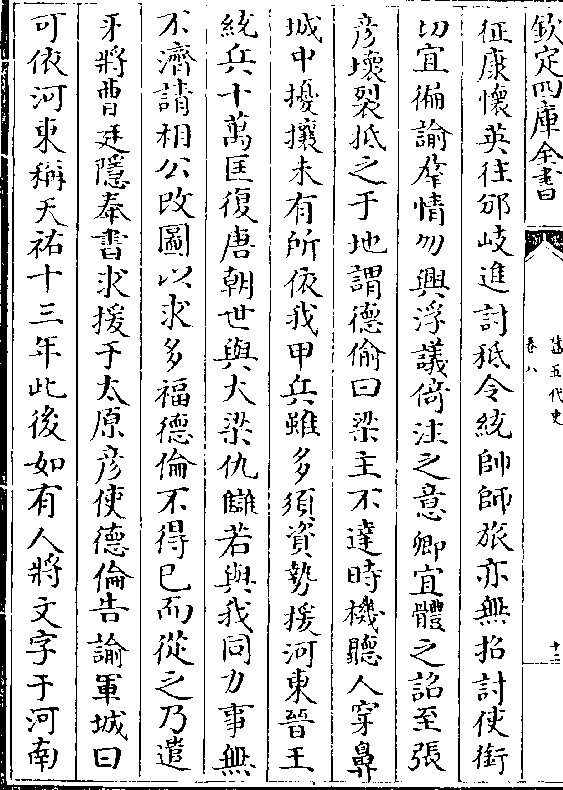 欽定四庫全書
舊五代史
卷八
十三
征康懷英往邠岐進討秪令統帥師旅亦無招討使銜
切宜徧諭羣情勿興浮議倚注之意卿宜體之詔至張
彦壞裂抵之于地謂德倫曰梁主不達時機聽人穿鼻
城中擾攘未有所依我甲兵雖多須資勢援河東晉王
統兵十萬匡復唐朝世與大梁仇讎若與我同力事無
不濟請相公改圖以求多福德倫不得已而從之乃遣
牙將曹廷隱奉書求援于太原彦使德倫告諭軍城曰
可依河東稱天祐十三年此後如有人將文字于河南